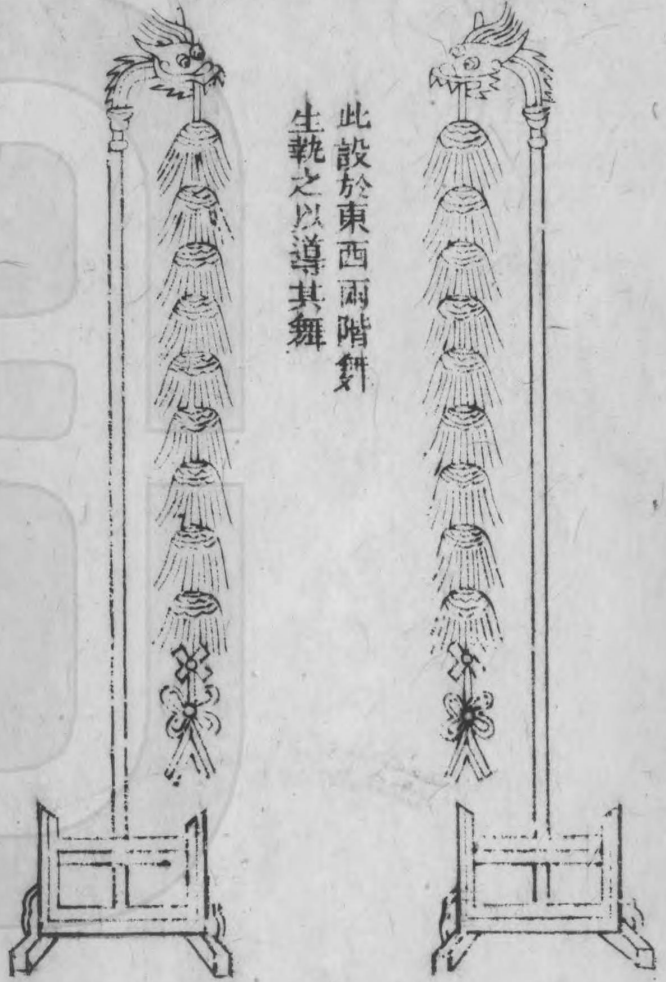 此設於東西兩階舞
生執之以導其舞